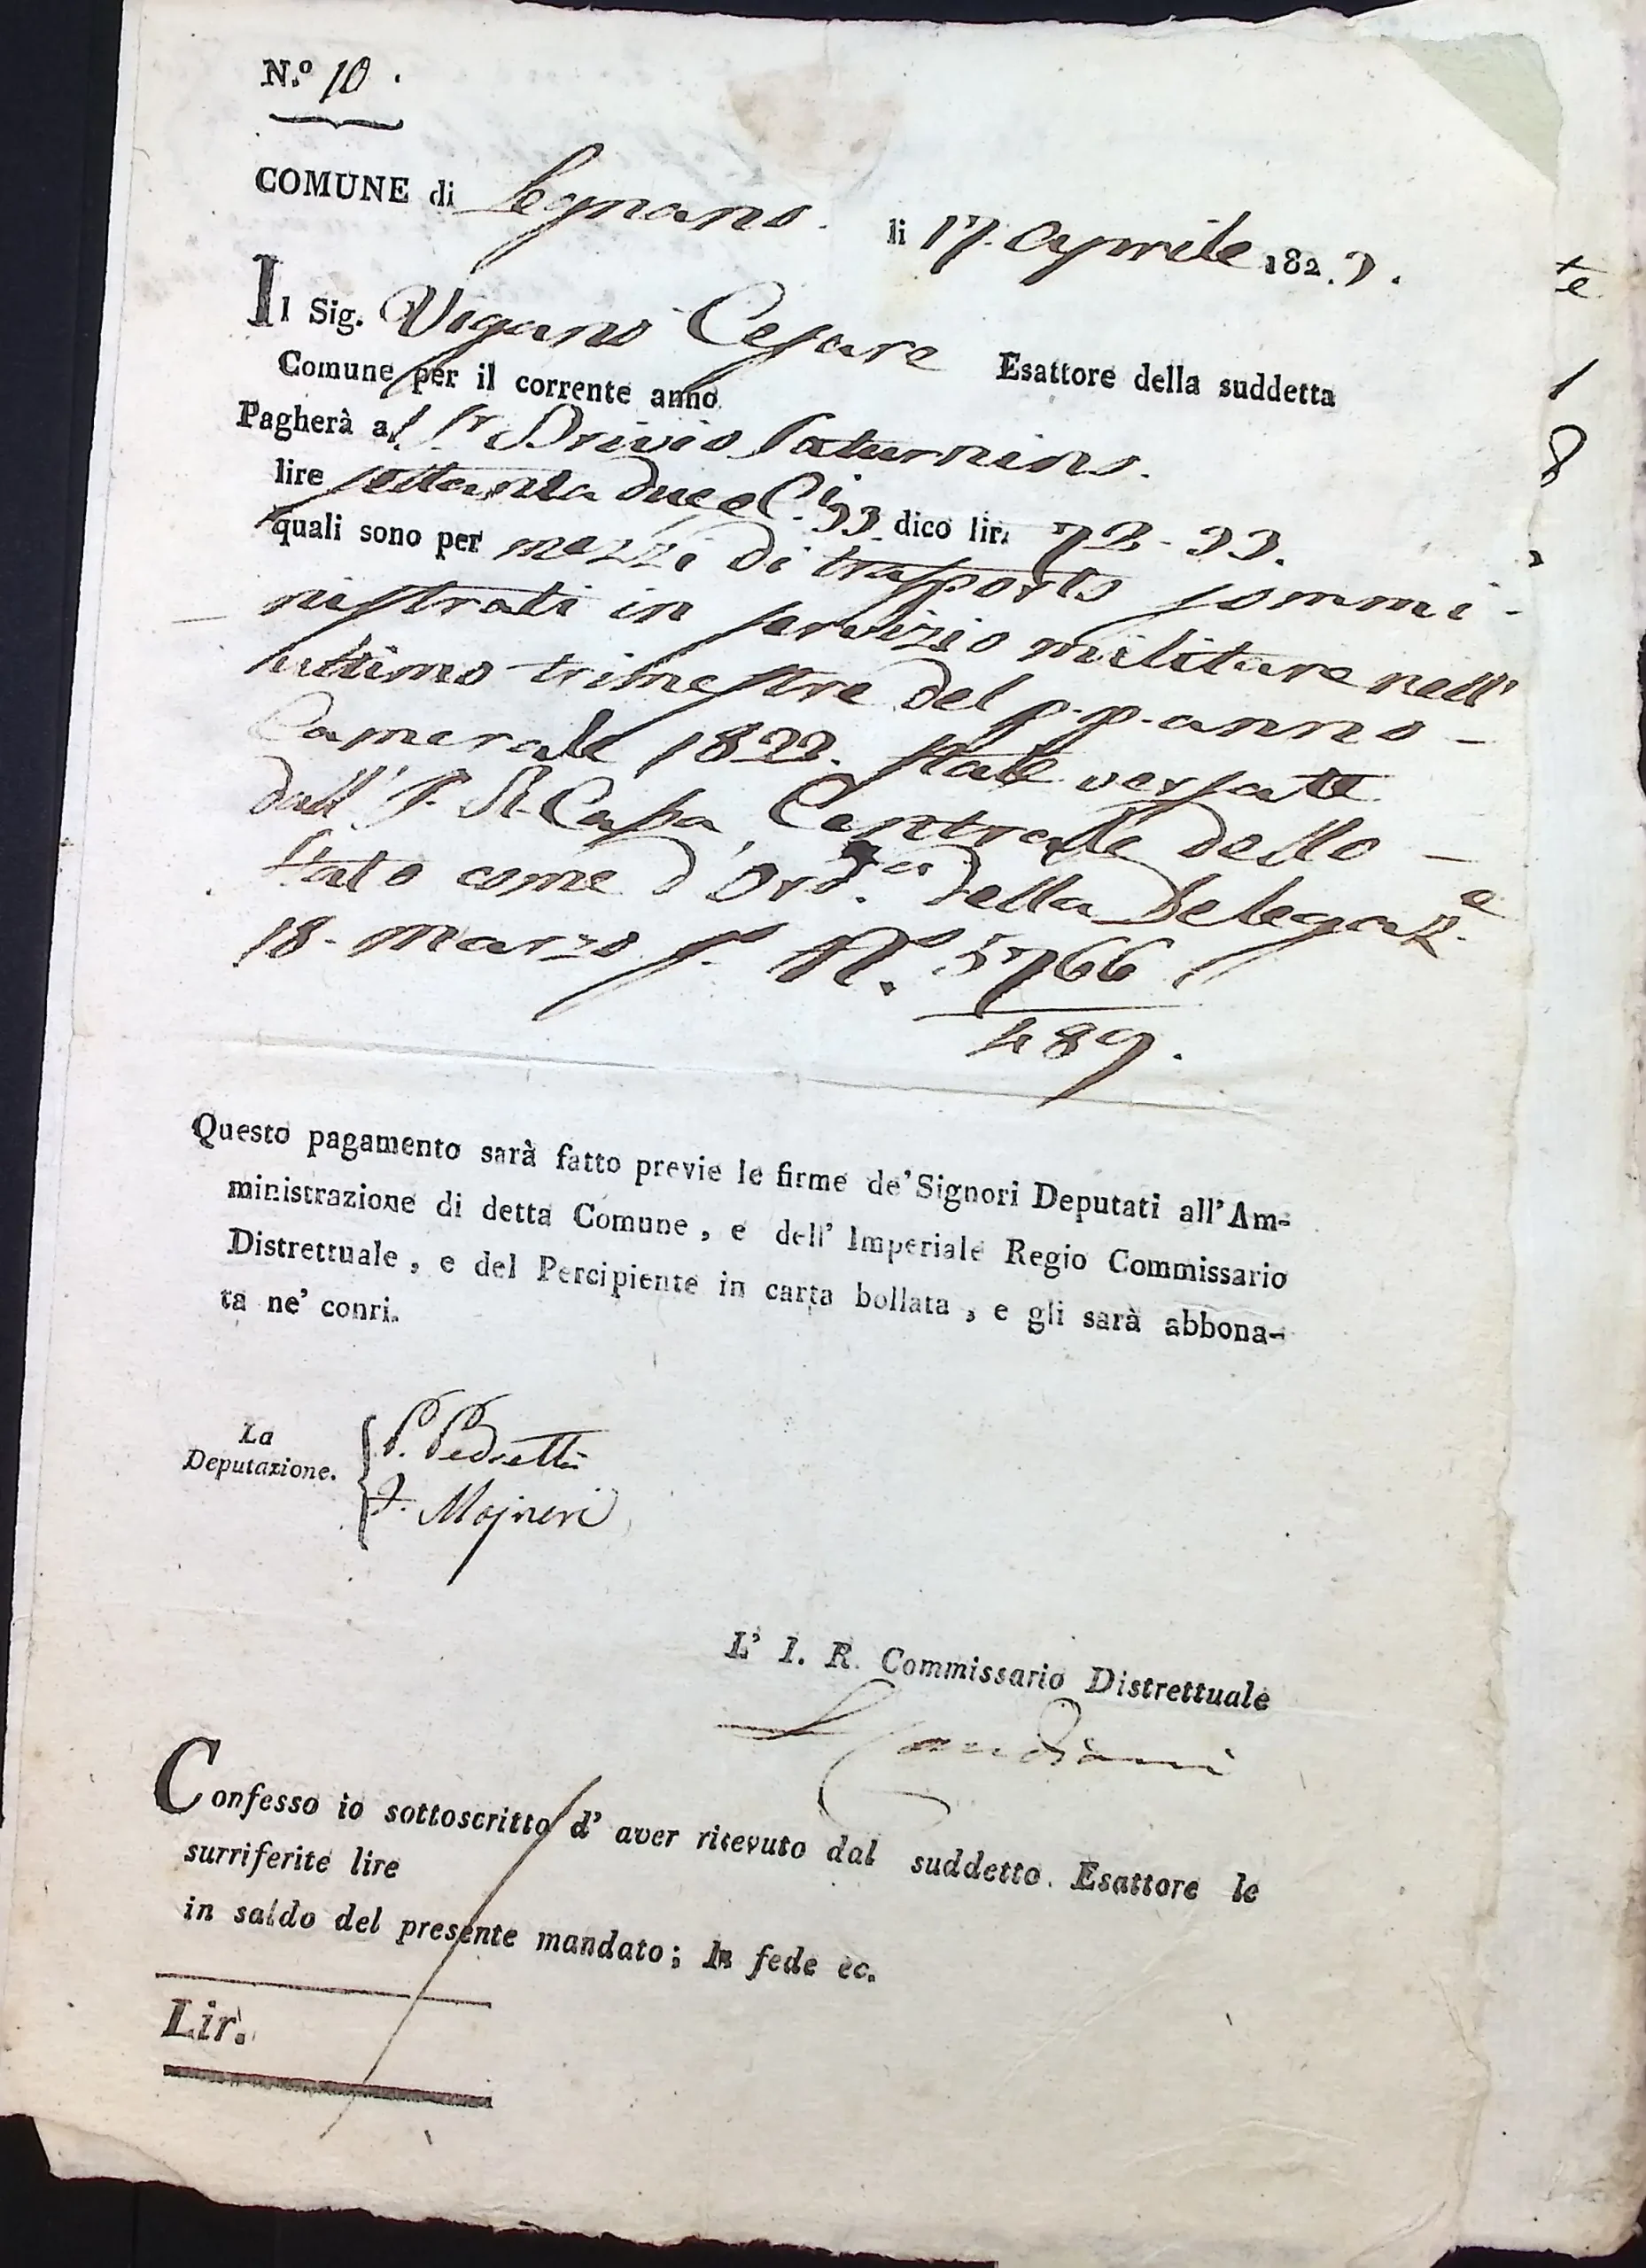 N.º 10.
COMUNE di Legnano. li 17. Aprile 1823.
Il Sig. Viganò Cesare Esattore della suddetta
Comune per il corrente anno
Pagherà al Sr Brivio Saturnino.
lire settanta due e C.i 33. dico lir. 72-33.
quali sono per mezzi di trasporto sommi-
nistrati in servizio militare nell'
ultimo trimestre del p. p. anno -
Camerale 1822. state versate
dall' I. R. Cassa Centrale dello -
Stato come d'Ord.a della Delegaz.e
18. Marzo N.º 5766
489.
Questo pagamento sarà fatto previe le firme de' Signori Deputati all' Am-
ministrazione di detta Comune, e dell' Imperiale Regio Commissario
Distrettuale, e del Percipiente in carta bollata, e gli sarà abbona-
ta ne' conri.
La
Deputazione.
P. Pedretti
F. Majneri
L' I. R. Commissario Distrettuale
Candiani
Confesso io sottoscritto d' aver ricevuto dal suddetto. Esattore le
surriferite lire
in saldo del presente mandato; In fede ec.
Lir.
te
1
8